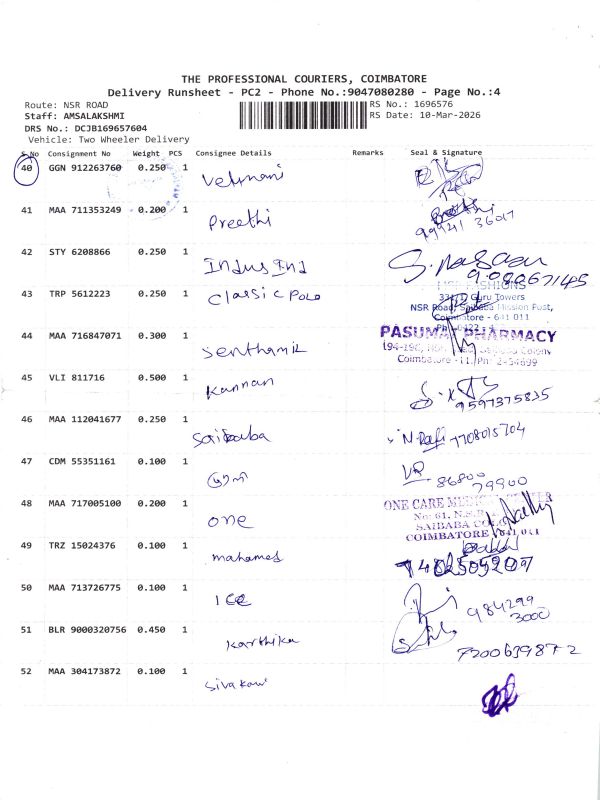 THE PROFESSIONAL COURIERS, COIMBATORE
Delivery Runsheet - PC2 - Phone No.:9047080280 - Page No.:4
Route: NSR ROAD
RS No.: 1696576
Staff: AMSALAKSHMI
RS Date: 10-Mar-2026
DRS No.: DCJB169657604
Vehicle: Two Wheeler Delivery
S.No Consignment No Weight PCS Consignee Details Remarks Seal & Signature
40 GGN 912263760 0.250 1 Velmani
41 MAA 711353249 0.200 1 Preethi
99941 36017
42 STY 6208866 0.250 1 Indus Ind
43 TRP 5612223 0.250 1 Classic Polo
FASHIONS
Guru Towers
NSR Road, Saibaba Mission Post,
Coimbatore - 641 011
44 MAA 716847071 0.300 1 Senthamil
PASUMAI PHARMACY
Colony
Coimbatore -11.
45 VLI 811716 0.500 1 Kannan
9597375835
46 MAA 112041677 0.250 1 Saibaba
N. Rafi 7708015704
47 CDM 55351161 0.100 1
86800
79900
48 MAA 717005100 0.200 1 One
ONE CARE
No: 61, N.S.R.
SAIBABA COLONY
COIMBATORE 641 011
49 TRZ 15024376 0.100 1 mahamed
50 MAA 713726775 0.100 1 ICE
984299
3000
51 BLR 9000320756 0.450 1 Karthika
7200639872
52 MAA 304173872 0.100 1 Sivakavi